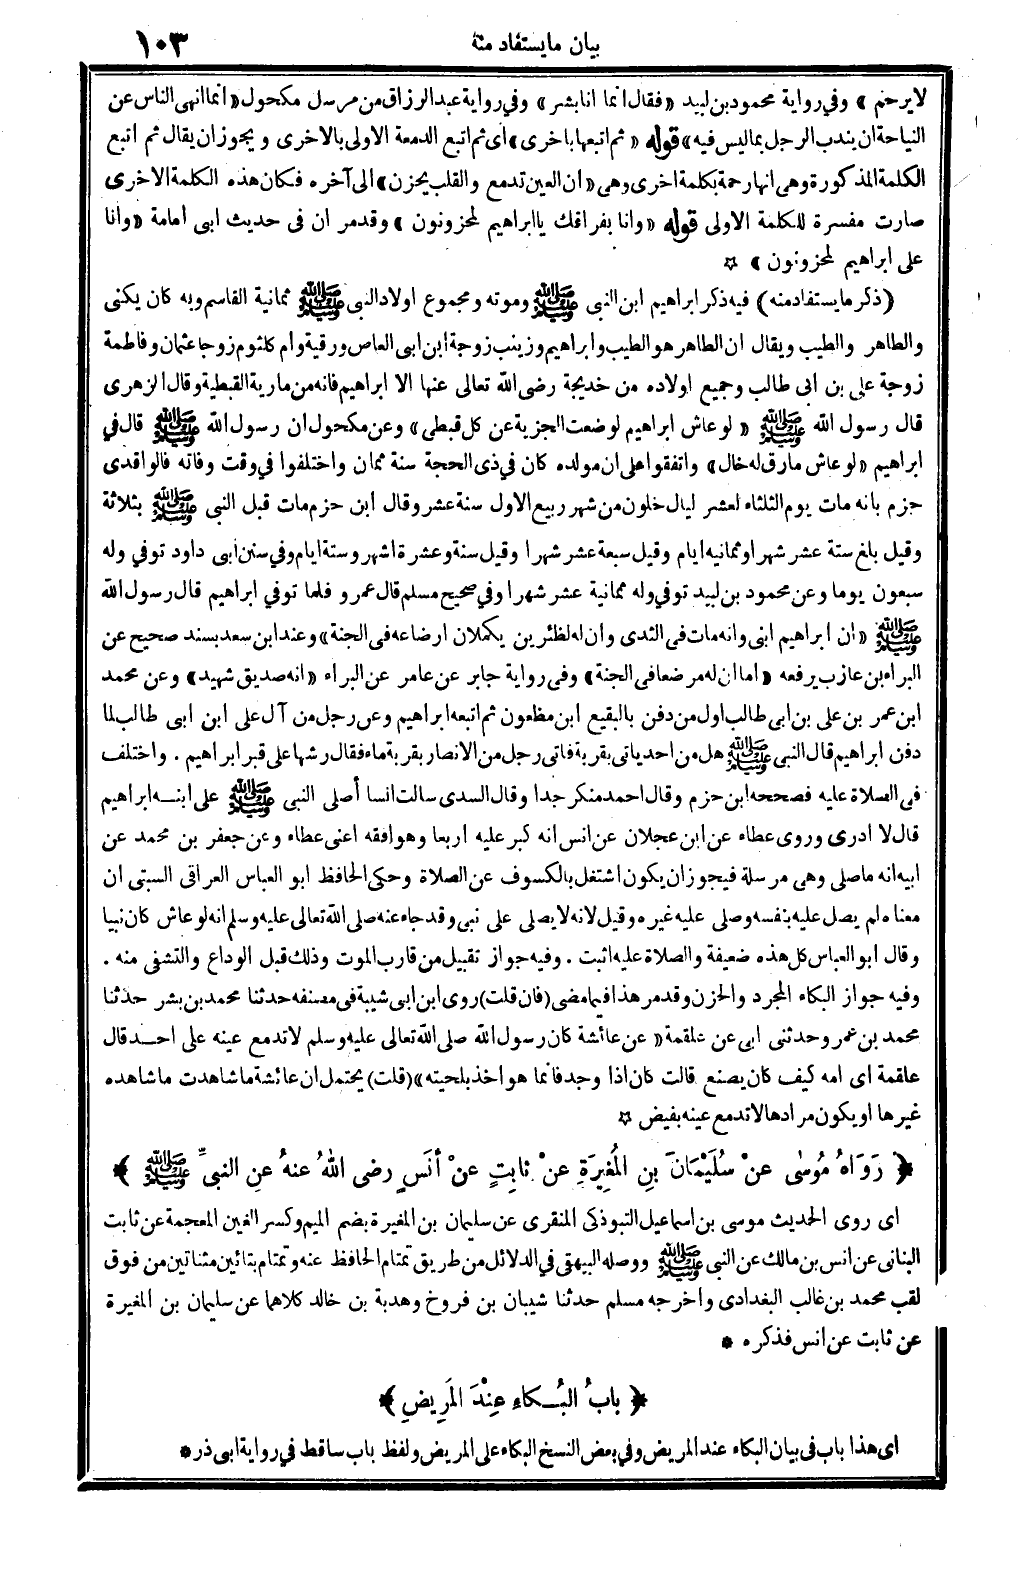 بيان ما يستفاد منه ١٠٣
لا يرحم» وفي رواية محمود بن لبيد «فقال انما انا بشر» وفي رواية عبد الرزاق من مرسل مكحول «انما انهى الناس عن
النياحة ان يندب الرجل بما ليس فيه» قوله «ثم اتبعها باخرى» أى ثم اتبع الدمعة الاولى بالاخرى ويجوز ان يقال ثم اتبع
الكلمة المذكورة وهى انها رحمة بكلمة اخرى وهى «ان العين تدمع والقلب يحزن» الى آخره فكان هذه الكلمة الاخرى
صارت مفسرة للكلمة الاولى قوله «وانا بفراقك يا ابراهيم لمحزونون» وقد مر ان فى حديث ابى امامة «وانا
على ابراهيم لمحزونون» ☆
(ذكر ما يستفاد منه) فيه ذكر ابراهيم ابن النبى ﷺ وموته ومجموع اولاد النبى ﷺ ثمانية القاسم وبه كان يكنى
والطاهر والطيب ويقال ان الطاهر هو الطيب وابراهيم وزينب زوجة ابن ابى العاص ورقية وأم كلثوم زوجا عثمان وفاطمة
زوجة على بن ابى طالب وجميع اولاده من خديجة رضى الله تعالى عنها الا ابراهيم فانه من مارية القبطية وقال الزهرى
قال رسول الله ﷺ «لو عاش ابراهيم لوضعت الجزية عن كل قبطى» وعن مكحول ان رسول الله ﷺ قال في
ابراهيم «لو عاش مارق له خال» واتفقوا على ان مولده كان في ذى الحجة سنة ثمان واختلفوا في وقت وفاته فالواقدى
جزم بانه مات يوم الثلثاء لعشر ليال خلون من شهر ربيع الاول سنة عشر وقال ابن حزم مات قبل النبى ﷺ بثلاثة
وقيل بلغ ستة عشر شهرا وثمانيه ايام وقيل سبعة عشر شهرا وقيل سنة وعشرة اشهر وستة ايام وفي سنن ابى داود توفي وله
سبعون يوما وعن محمود بن لبيد توفي وله ثمانية عشر شهرا وفي صحيح مسلم قال عمرو فلما توفي ابراهيم قال رسول الله
ﷺ «ان ابراهيم ابنى وانه مات فى الثدى وان له لظئرين يكملان ارضاعه فى الجنة» وعند ابن سعد بسند صحيح عن
البراء بن عازب يرفعه «اما ان له مرضعا في الجنة» وفى رواية جابر عن عامر عن البراء «انه صديق شهيد» وعن محمد
ابن عمر بن على بن ابى طالب اول من دفن بالبقيع ابن مظعون ثم اتبعه ابراهيم وعن رجل من آل على ابن ابى طالب لما
دفن ابراهيم قال النبى ﷺ هل من احد ياتى بقربة فاتى رجل من الانصار بقربة ماء فقال رشها على قبر ابراهيم . واختلف
فى الصلاة عليه فصححه ابن حزم وقال احمد منكر جدا وقال السدى سالت انسا أصلى النبى ﷺ على ابنه ابراهيم
قال لا ادرى وروى عطاء عن ابن عجلان عن انس انه كبر عليه اربعا وهو افقه اعنى عطاء وعن جعفر بن محمد عن
ابيه انه ما صلى وهى مرسلة فيجوز ان يكون اشتغل بالكسوف عن الصلاة وحكى الحافظ ابو العباس العراقى السبتى ان
معناه لم يصل عليه بنفسه وصلى عليه غيره وقيل لانه لا يصلى على نبى وقد جاء عنه صلى الله تعالى عليه وسلم انه لو عاش كان نبيا
وقال ابو العباس كل هذه ضعيفة والصلاة عليه اثبت . وفيه جواز تقبيل من قارب الموت وذلك قبل الوداع والتشفى منه .
وفيه جواز البكاء المجرد والحزن وقد مر هذا فيما مضى (فان قلت) روى ابن ابى شيبة فى مصنفه حدثنا محمد بن بشر حدثنا
محمد بن عمر وحدثنى ابى عن علقمة «عن عائشة كان رسول الله صلى الله تعالى عليه وسلم لا تدمع عينه على احد قال
علقمة اى امه كيف كان يصنع قالت كان اذا وجد فانما هو اخذ بلحيته» (قلت) يحتمل ان عائشة ما شاهدت ما شاهده
غيرها او يكون مرادها لا تدمع عينه بفيض ☆
﴿ رَوَاهُ مُوسٰى عنْ سُلَيْمَانَ بنِ المُغِيرَةِ عنْ ثابِتٍ عنْ أنَسٍ رضى اللهُ عنهُ عنِ النبيِّ ﷺ ﴾
اى روى الحديث موسى بن اسماعيل التبوذكى المنقرى عن سليمان بن المغيرة بضم الميم وكسر الغين المعجمة عن ثابت
البنانى عن انس بن مالك عن النبى ﷺ ووصله البيهقى في الدلائل من طريق تمتام الحافظ عنه وتمتام بتائين مثناتين من فوق
لقب محمد بن غالب البغدادى واخرجه مسلم حدثنا شيبان بن فروخ وهدبة بن خالد كلاهما عن سليمان بن المغيرة
عن ثابت عن انس فذكره *
﴿ بابُ البُكاءِ عِنْدَ المَرِيضِ ﴾
اى هذا باب فى بيان البكاء عند المريض وفي بعض النسخ البكاء على المريض ولفظ باب ساقط في رواية ابى ذر *